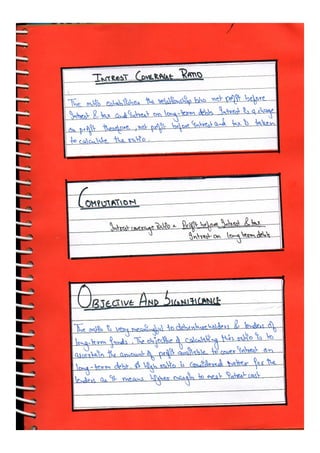 INTREST COVERAGE RATIO
The ratio establishes the relationship b/w net profit before
Intrest & tax and Intrest on long-term debts. Intrest is a charge
on profit therefore, net profit before Intrest and tax is taken
to calculate the ratio.
COMPUTATION
Intrest coverage Ratio = Profit before Intrest & tax
Intrest on long term debts
OBJECTIVE AND SIGNIFICANCE
The ratio is very meaningful to debentureholders & lenders of
long-term funds. The objective of calculating this ratio is to
ascertain the amount of profit available to cover Intrest on
long-term debt. A High ratio is considered better for the
lenders as it means higher margin to meet Intrest cost